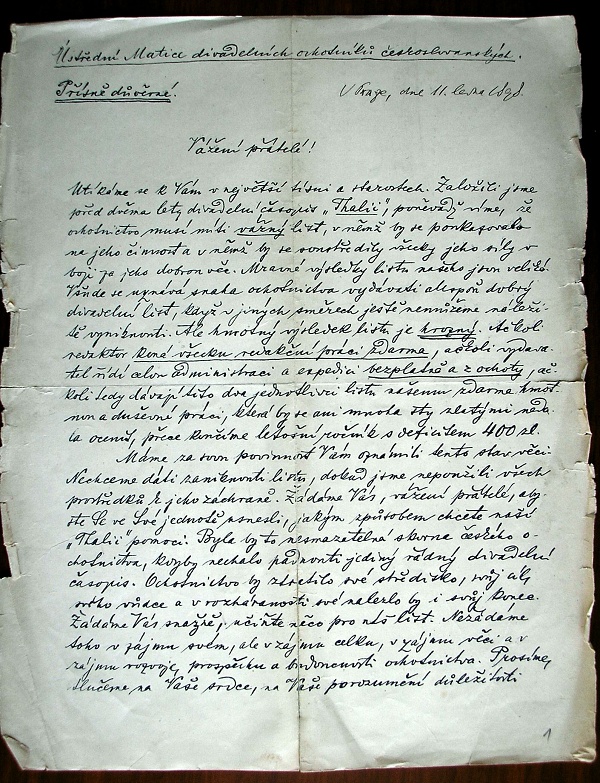 Ústřední Matice divadelních ochotníků českoslovanských.
Přísně důvěrné!
V Praze, dne 11. ledna 1898.
Vážení přátelé!
Utíkáme se k Vám v největší tísni a starostech. Založili jsme
před dvěma lety divadelní časopis „Thalii“, poněvadž víme, že
ochotnictvo musí míti vážný list, v němž by se poukazovalo
na jeho činnost a v němž by se soustředily všecky jeho síly v
boji za jeho dobrou věc. Mravné výsledky listu našeho jsou veliké.
Všude se uznává snaha ochotnictva vydávati alespoň dobrý
divadelní list, když v jiných směrech ještě nemůžeme náleži-
tě vyniknouti. Ale hmotný výsledek listu je hrozný. Ač koli
redaktor koná všecku redakční práci zdarma, ač koli vydava-
tel řídí celou administraci a expedici bezplatně a z ochoty, ač-
koli tedy dávají tito dva jednotlivci listu našemu zdarma hmot-
nou a duševní práci, která by se ani mnoha sty zlatými neda-
la ocenit, přece končíme letošní ročník s deficitem 400 zl.
Máme za svou povinnost Vám oznámiti tento stav věci.
Nechceme dáti zaniknouti listu, dokud jsme nepoužili všech
prostředků k jeho záchraně. Žádáme Vás, vážení přátelé, aby
ste se ve své jednotě usnesli, jakým způsobem chcete naší
„Thalii“ pomoci. Byla by to nesmazatelná skvrna českého o-
chotnictva, kdyby nechalo padnouti jediný řádný divadelní
časopis. Ochotnictvo by ztratilo své středisko, svůj
svého vůdce a v rozháranosti své nalezlo by i svůj konec.
Žádáme Vás snažně, učiňte něco pro náš list. Nežádáme
toho v zájmu svém, ale v zájmu celku, v zájmu věci a v
zájmu rozvoje, prospěchu a budoucnosti ochotnictva. Prosíme,
tlučeme na Vaše srdce, na Vaše porozumění důležitosti
1